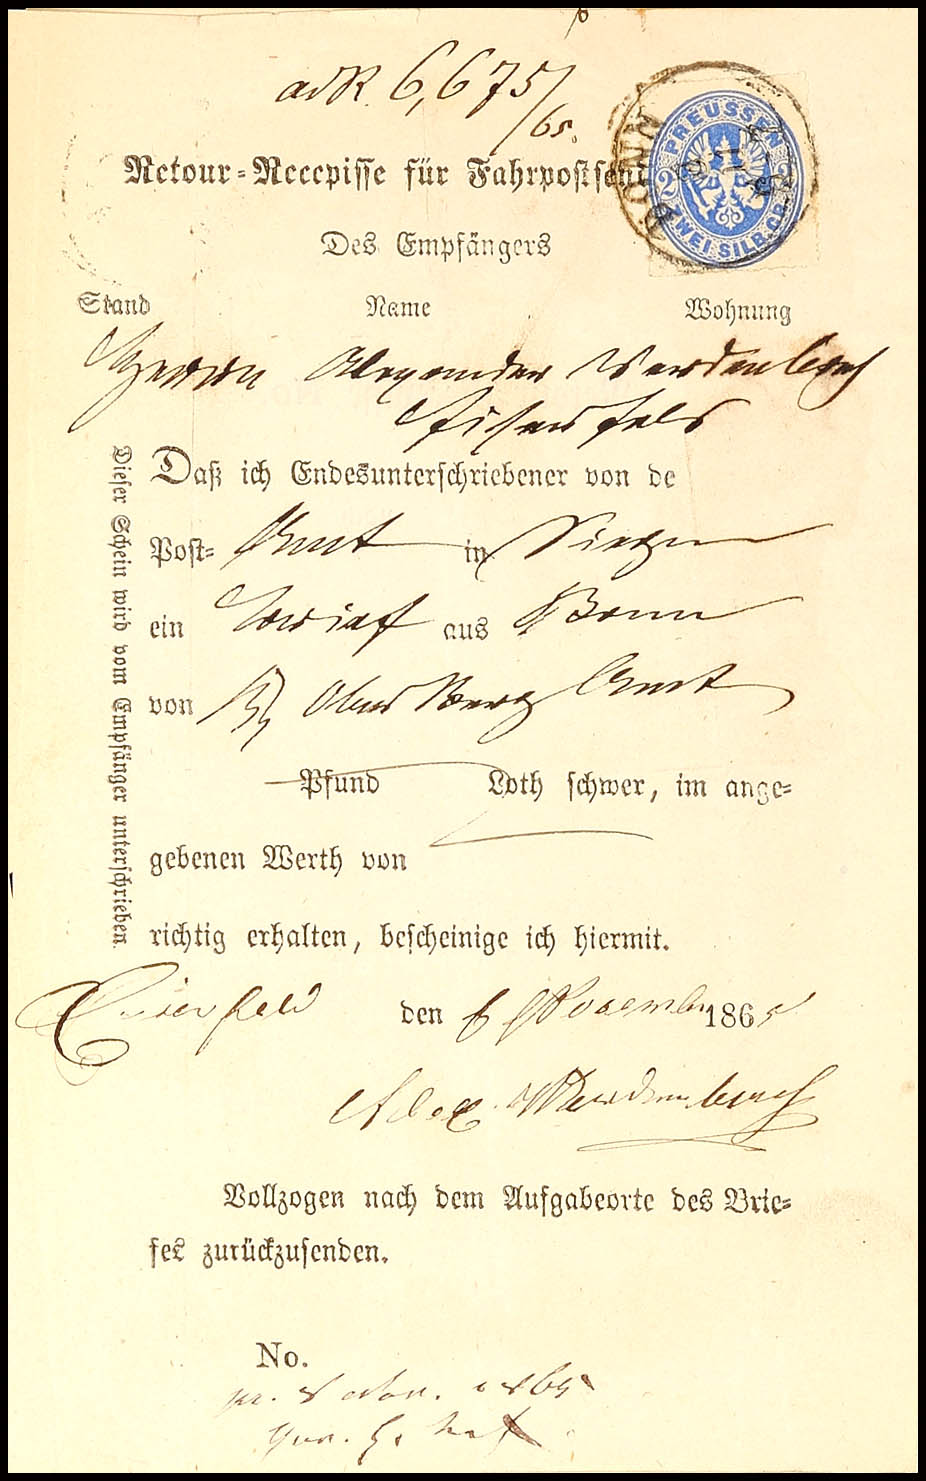 adR. 6,675/
/65.
Retour-Recepisse für Fahrpostsend
PREUSSEN
2 2
ZWEI SILB.GR.
BONN
Des Empfängers
Stand Name Wohnung
Herrn Alexander Werdenberg
Eisenfeld
Dieser Schein wird vom Empfänger unterschrieben.
Daß ich Endesunterschriebener von de
Post= Amt in Siegen
ein Brief aus Bonn
von Ober Berg Amt
Pfund Loth schwer, im ange=
gebenen Werth von
richtig erhalten, bescheinige ich hiermit.
den 6 November 1865
Alex
Vollzogen nach dem Aufgabeorte des Brie=
fes zurückzusenden.
No.
1865